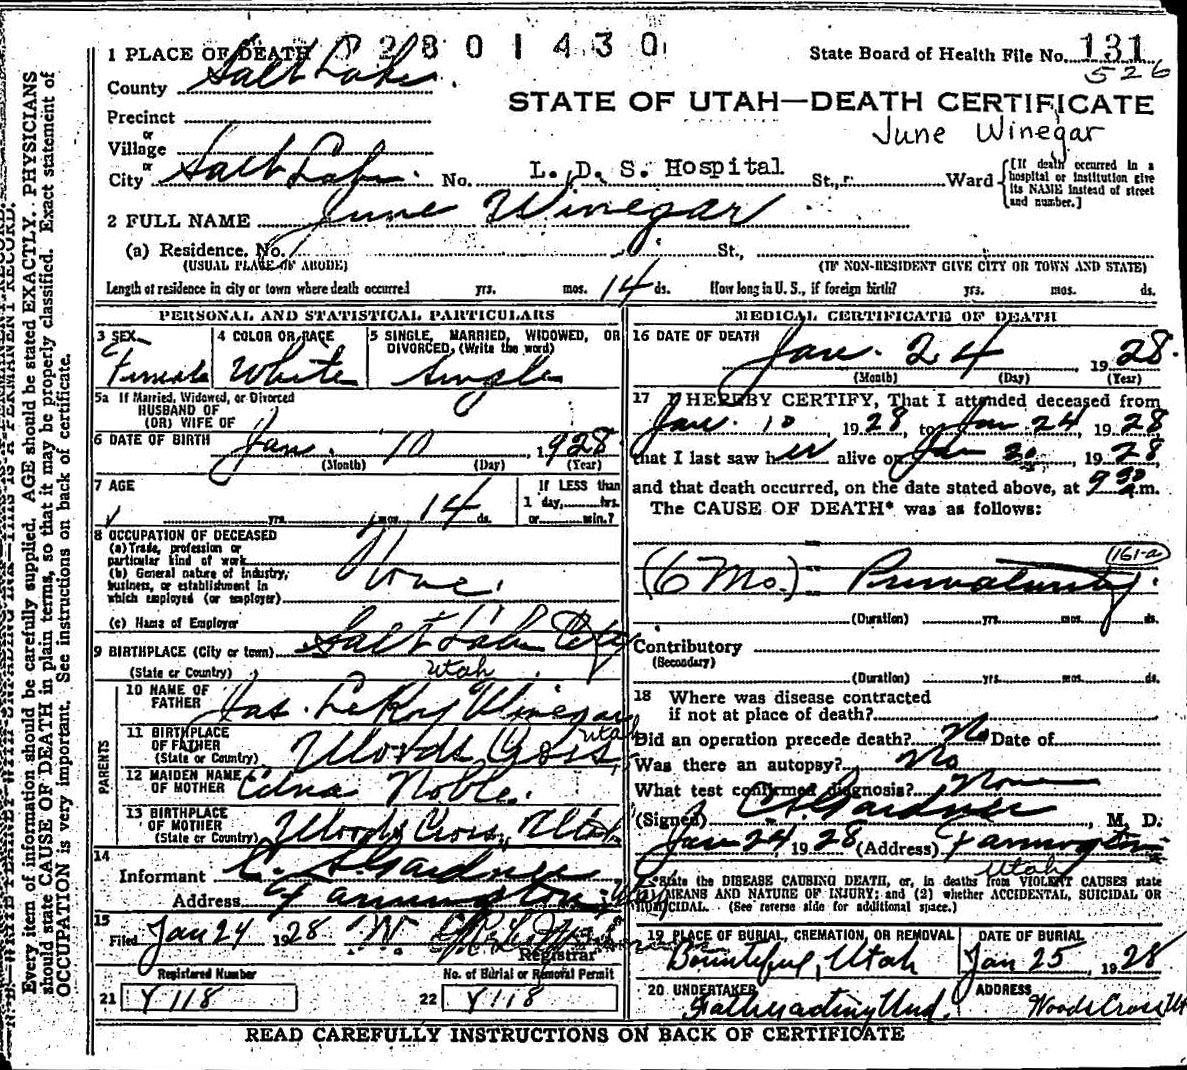 2801430
1 PLACE OF DEATH
State Board of Health File No. 131
526
County Salt Lake
STATE OF UTAH—DEATH CERTIFICATE
June Winegar
Precinct
or
Village
or
City Salt Lake No. L. D. S. Hospital St., Ward
[If death occurred in a
hospital or institution give
its NAME instead of street
and number.]
2 FULL NAME June Winegar
(a) Residence. No. St.,
(USUAL PLACE OF ABODE) (IF NON-RESIDENT GIVE CITY OR TOWN AND STATE)
Length of residence in city or town where death occurred yrs. mos. 14 ds. How long in U. S., if foreign birth? yrs. mos. ds.
PERSONAL AND STATISTICAL PARTICULARS
3 SEX Female
4 COLOR OR RACE White
5 SINGLE, MARRIED, WIDOWED, OR
DIVORCED, (Write the word)
Single
5a If Married, Widowed, or Divorced
HUSBAND OF
(OR) WIFE OF
6 DATE OF BIRTH Jan. 10 1928
(Month) (Day) (Year)
7 AGE yrs. mos. 14 ds.
If LESS than
1 day, hrs.
or min.?
8 OCCUPATION OF DECEASED
(a) Trade, profession or
particular kind of work
(b) General nature of industry,
business, or establishment in
which employed (or employer)
None.
(c) Name of Employer
9 BIRTHPLACE (City or town) Salt Lake City
(State or Country) Utah
PARENTS
10 NAME OF
FATHER Jas. LeRoy Winegar
11 BIRTHPLACE
OF FATHER
(State or Country) Woods Cross Utah
12 MAIDEN NAME
OF MOTHER Edna Noble.
13 BIRTHPLACE
OF MOTHER
(State or Country) Woods Cross, Utah
14
Informant C. A. Gardner
Address Farmington, Utah
15
Filed Jan 24 1928
Registrar
Registered Number No. of Burial or Removal Permit
21 Y118 22 Y118
MEDICAL CERTIFICATE OF DEATH
16 DATE OF DEATH
Jan. 24 1928.
(Month) (Day) (Year)
17 I HEREBY CERTIFY, That I attended deceased from
Jan. 10 1928, to Jan 24, 1928
that I last saw her alive on Jan 20, 1928
and that death occurred, on the date stated above, at 9 30 a.m.
The CAUSE OF DEATH* was as follows:
161-a
(6 Mo.) Prematurity.
(Duration) yrs. mos. ds.
Contributory
(Secondary)
(Duration) yrs. mos. ds.
18 Where was disease contracted
if not at place of death?
Did an operation precede death? No Date of
Was there an autopsy? No
What test confirmed diagnosis? None
(Signed) C. A. Gardner, M. D.
Jan 24, 1928 (Address) Farmington
Utah
*State the DISEASE CAUSING DEATH, or, in deaths from VIOLENT CAUSES state
(1) MEANS AND NATURE OF INJURY; and (2) whether ACCIDENTAL, SUICIDAL OR
HOMICIDAL. (See reverse side for additional space.)
19 PLACE OF BURIAL, CREMATION, OR REMOVAL DATE OF BURIAL
Bountiful, Utah Jan 25, 1928
20 UNDERTAKER ADDRESS
Woods Cross Ut
READ CAREFULLY INSTRUCTIONS ON BACK OF CERTIFICATE
Every item of information should be carefully supplied. AGE should be stated EXACTLY. PHYSICIANS
should state CAUSE OF DEATH in plain terms, so that it may be properly classified. Exact statement of
OCCUPATION is very important. See instructions on back of certificate.